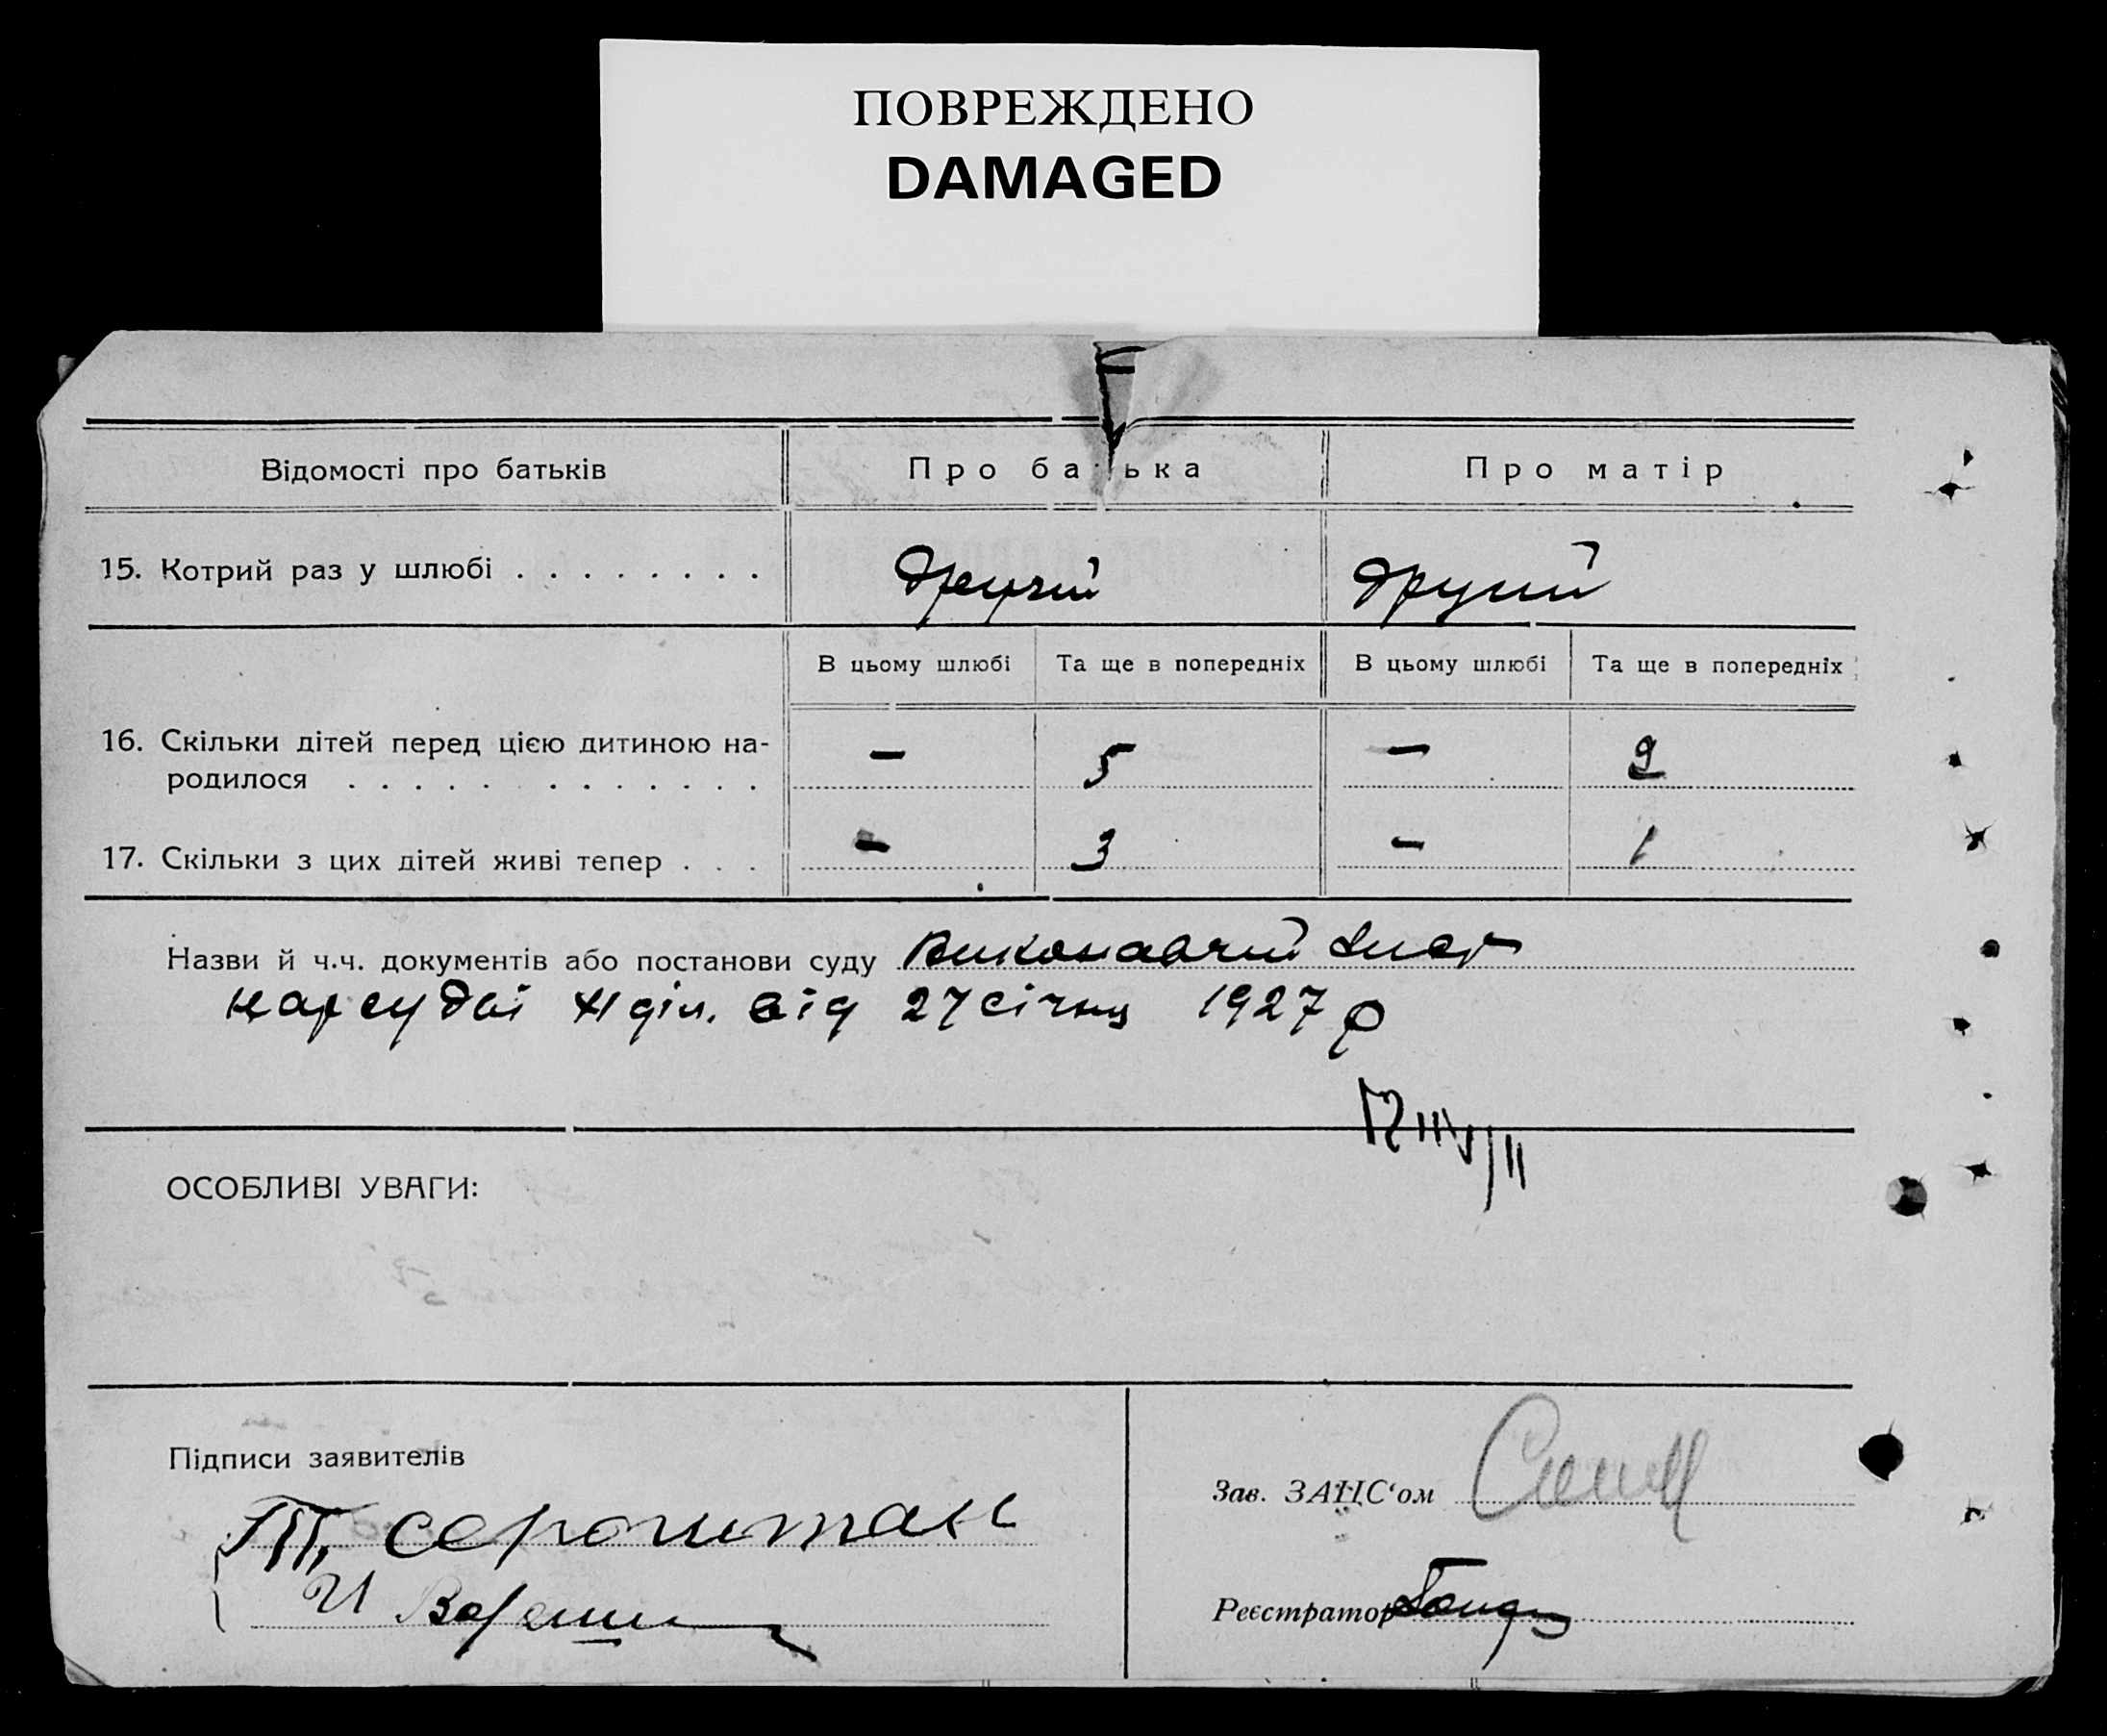 ПОВРЕЖДЕНО
DAMAGED
Відомості про батьків
Про батька
Про матір
15. Котрий раз у шлюбі . . . . . . . .
другий
В цьому шлюбі
Та ще в попередніх
В цьому шлюбі
Та ще в попередніх
16. Скільки дітей перед цією дитиною на-
родилося . . . . . . . . . . . . .
— 5 — 2
17. Скільки з цих дітей живі тепер . . .
— 3 — 1
Назви й ч.ч. документів або постанови суду Виконавчий лист
нарсуду діл. від 27 січня 1927 р
ОСОБЛИВІ УВАГИ:
Підписи заявителів
Зав. ЗАЦС'ом
Реєстратор